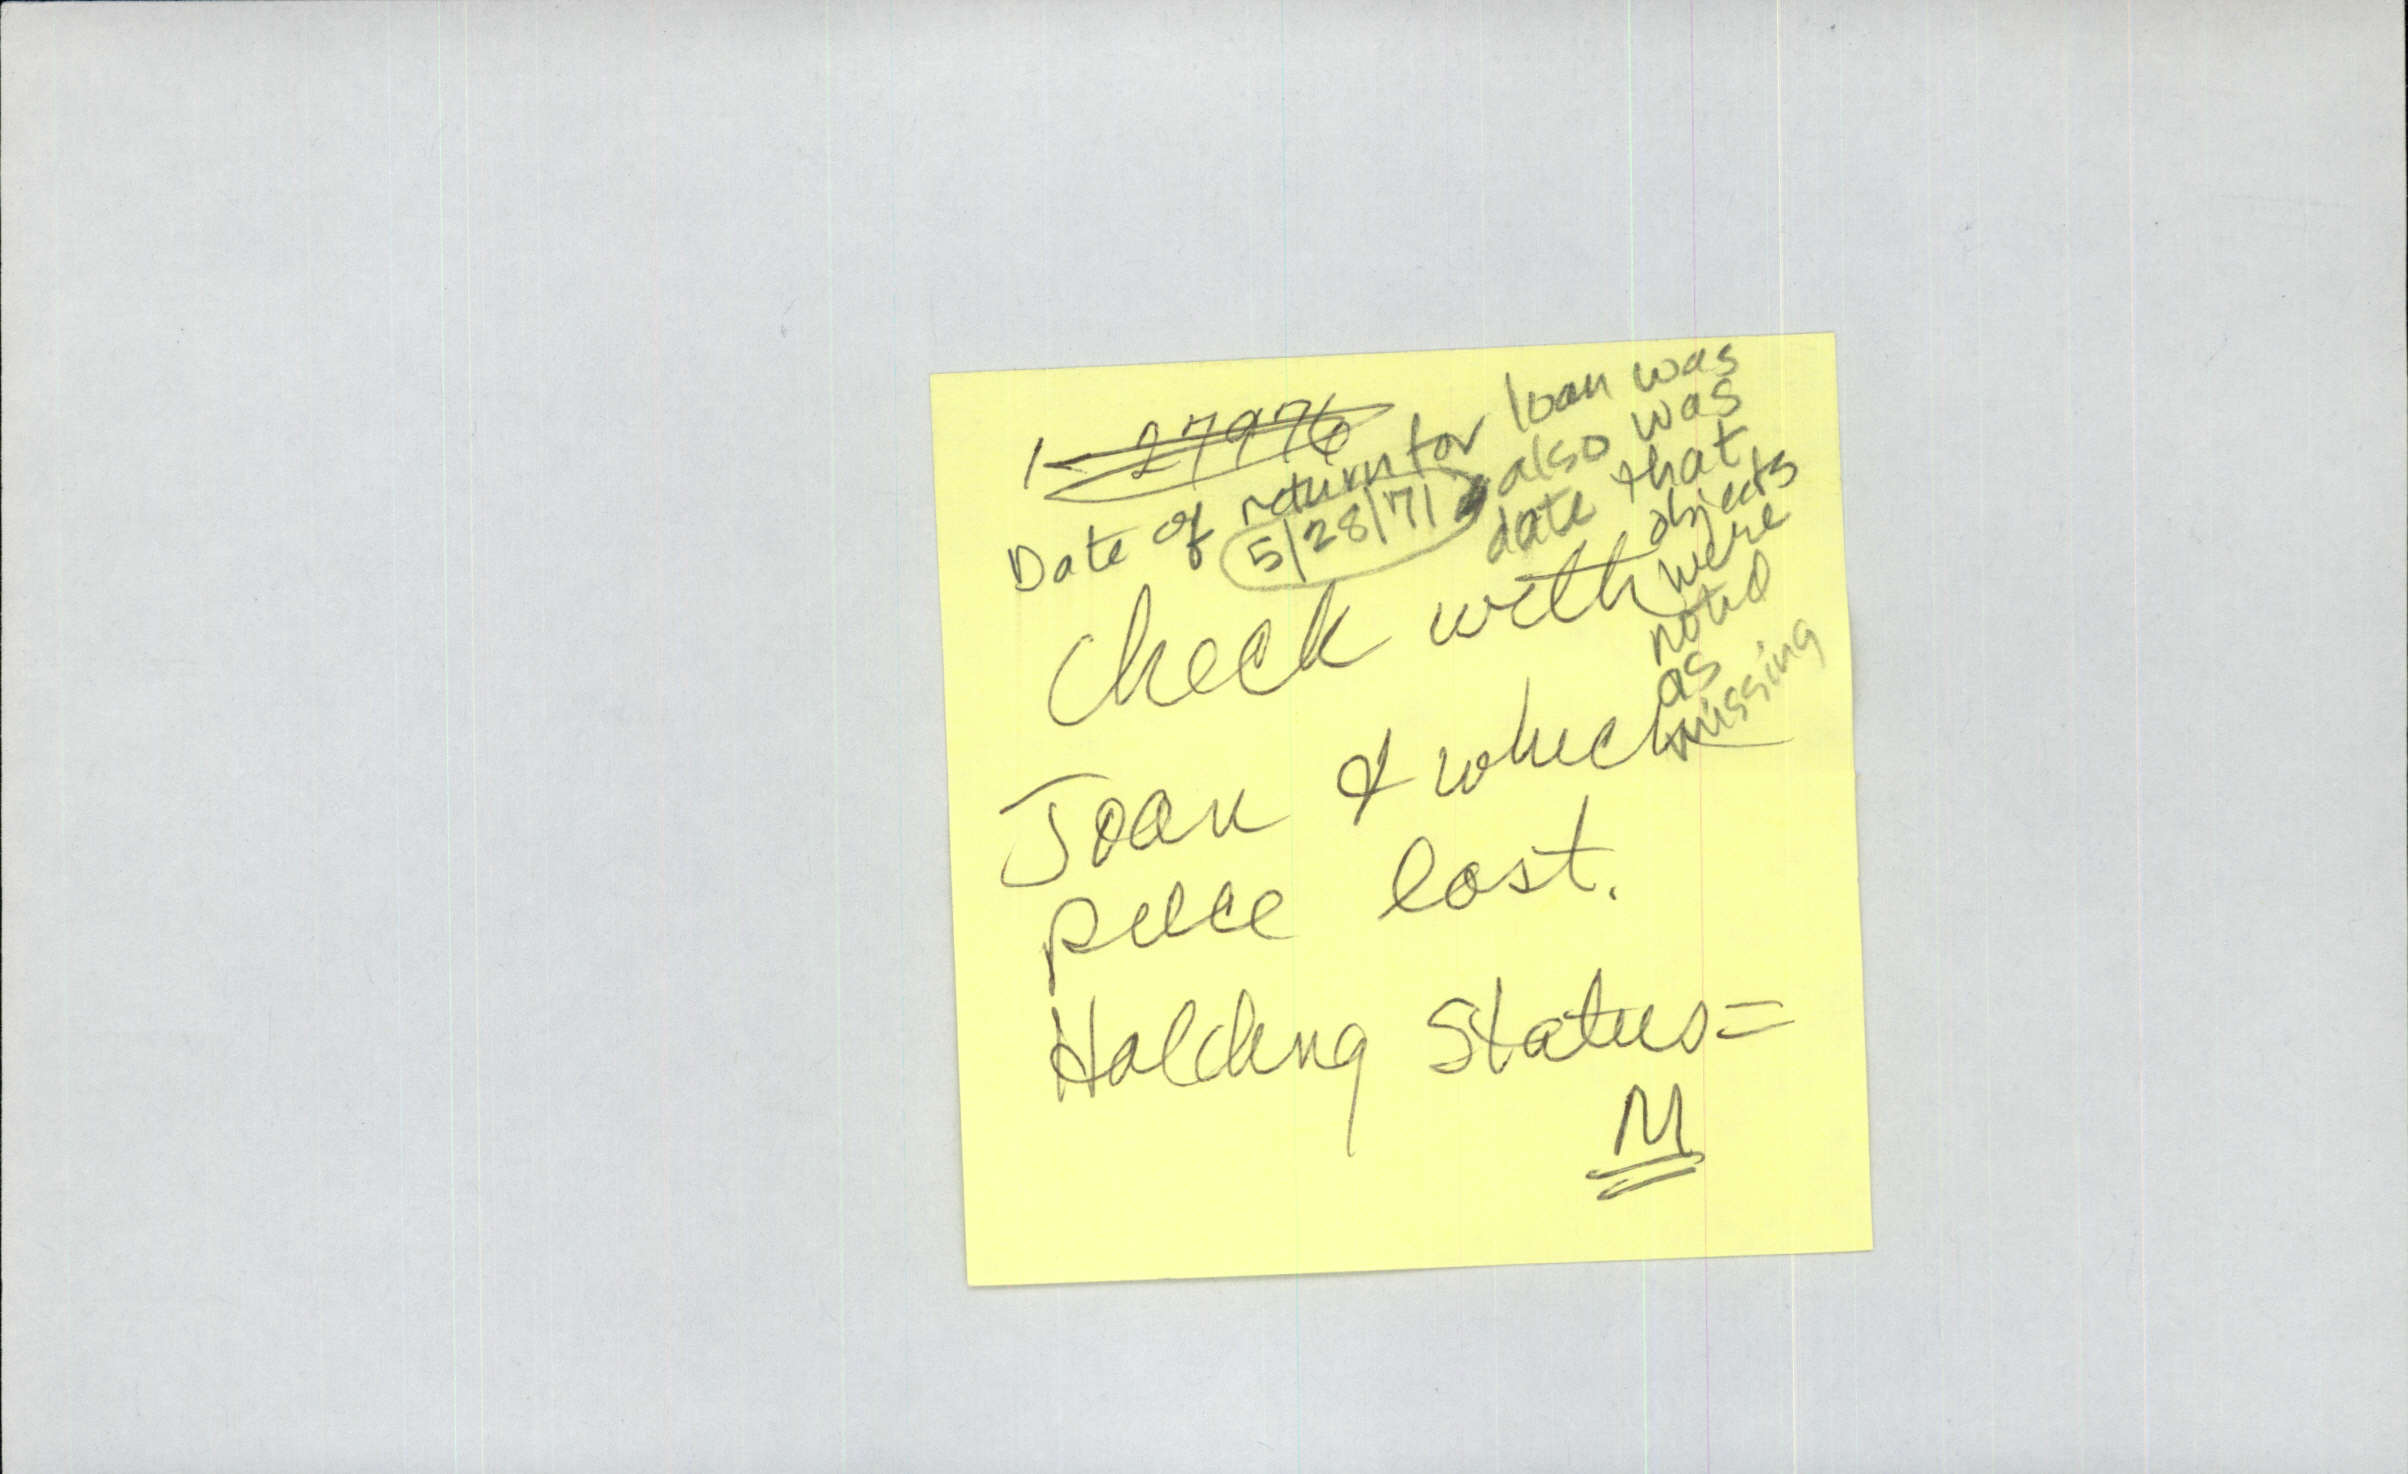 1-27976
Date of return for loan was
5/28/71, also was
date that
objects
were
noted
as
missing
Check with
Joan & which
piece lost.
Holding Status =
M